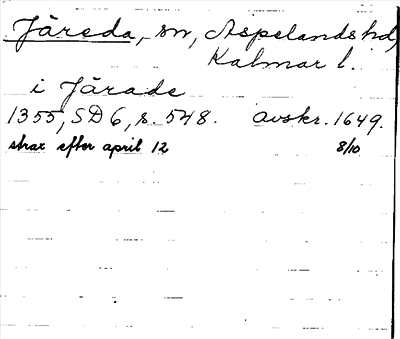 Järeda, sn, Aspelands hd,
Kalmar l.
i Järade
1355, SD 6, s. 548. avskr. 1649.
strax efter april 12 8/10